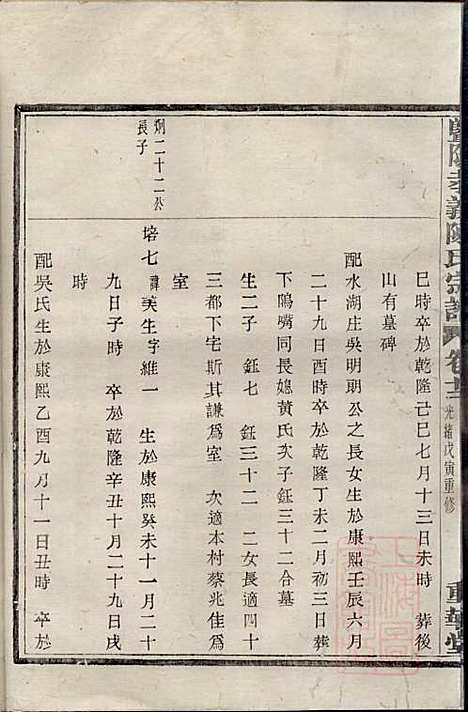 暨陽孝義陳氏宗譜 卷十三 光緒戊寅重修 重華堂
巳時卒於乾隆己巳七月十三日未時 葬後
山有墓碑
配水湖庄吳明朝公之長女生於康熙壬辰六月
二十九日酉時卒於乾隆丁未二月初三日葬
下鳴嘴同長媳黃氏次子鈺三十二合墓
生二子 鈺七 鈺三十二 二女長適四十
三都下宅斯其謙為室 次適本村蔡兆佳為
室
炯二十二公
長子
培七 諱美生字維一 生於康熙癸未十一月二十
九日子時 卒於乾隆辛丑十月二十九日戌
時
配吳氏生於康熙乙酉九月十一日丑時 卒於